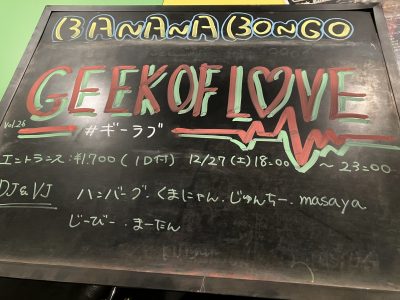 BANANA BONGO
GEEK OF LOVE
Vol.26
#ギーラブ
エントランス:¥1,700(1D付) 12/27(土)18:00〜23:00
DJ&VJ
ハンバーグ.くまにゃん.じゅんちー.masaya
じーびー.まーたん